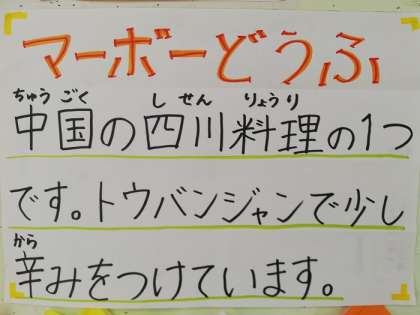 マーボーどうふ
ちゅうごく しせん りょうり
中国の四川料理の1つ
です。トウバンジャンで少し
から
辛みをつけています。